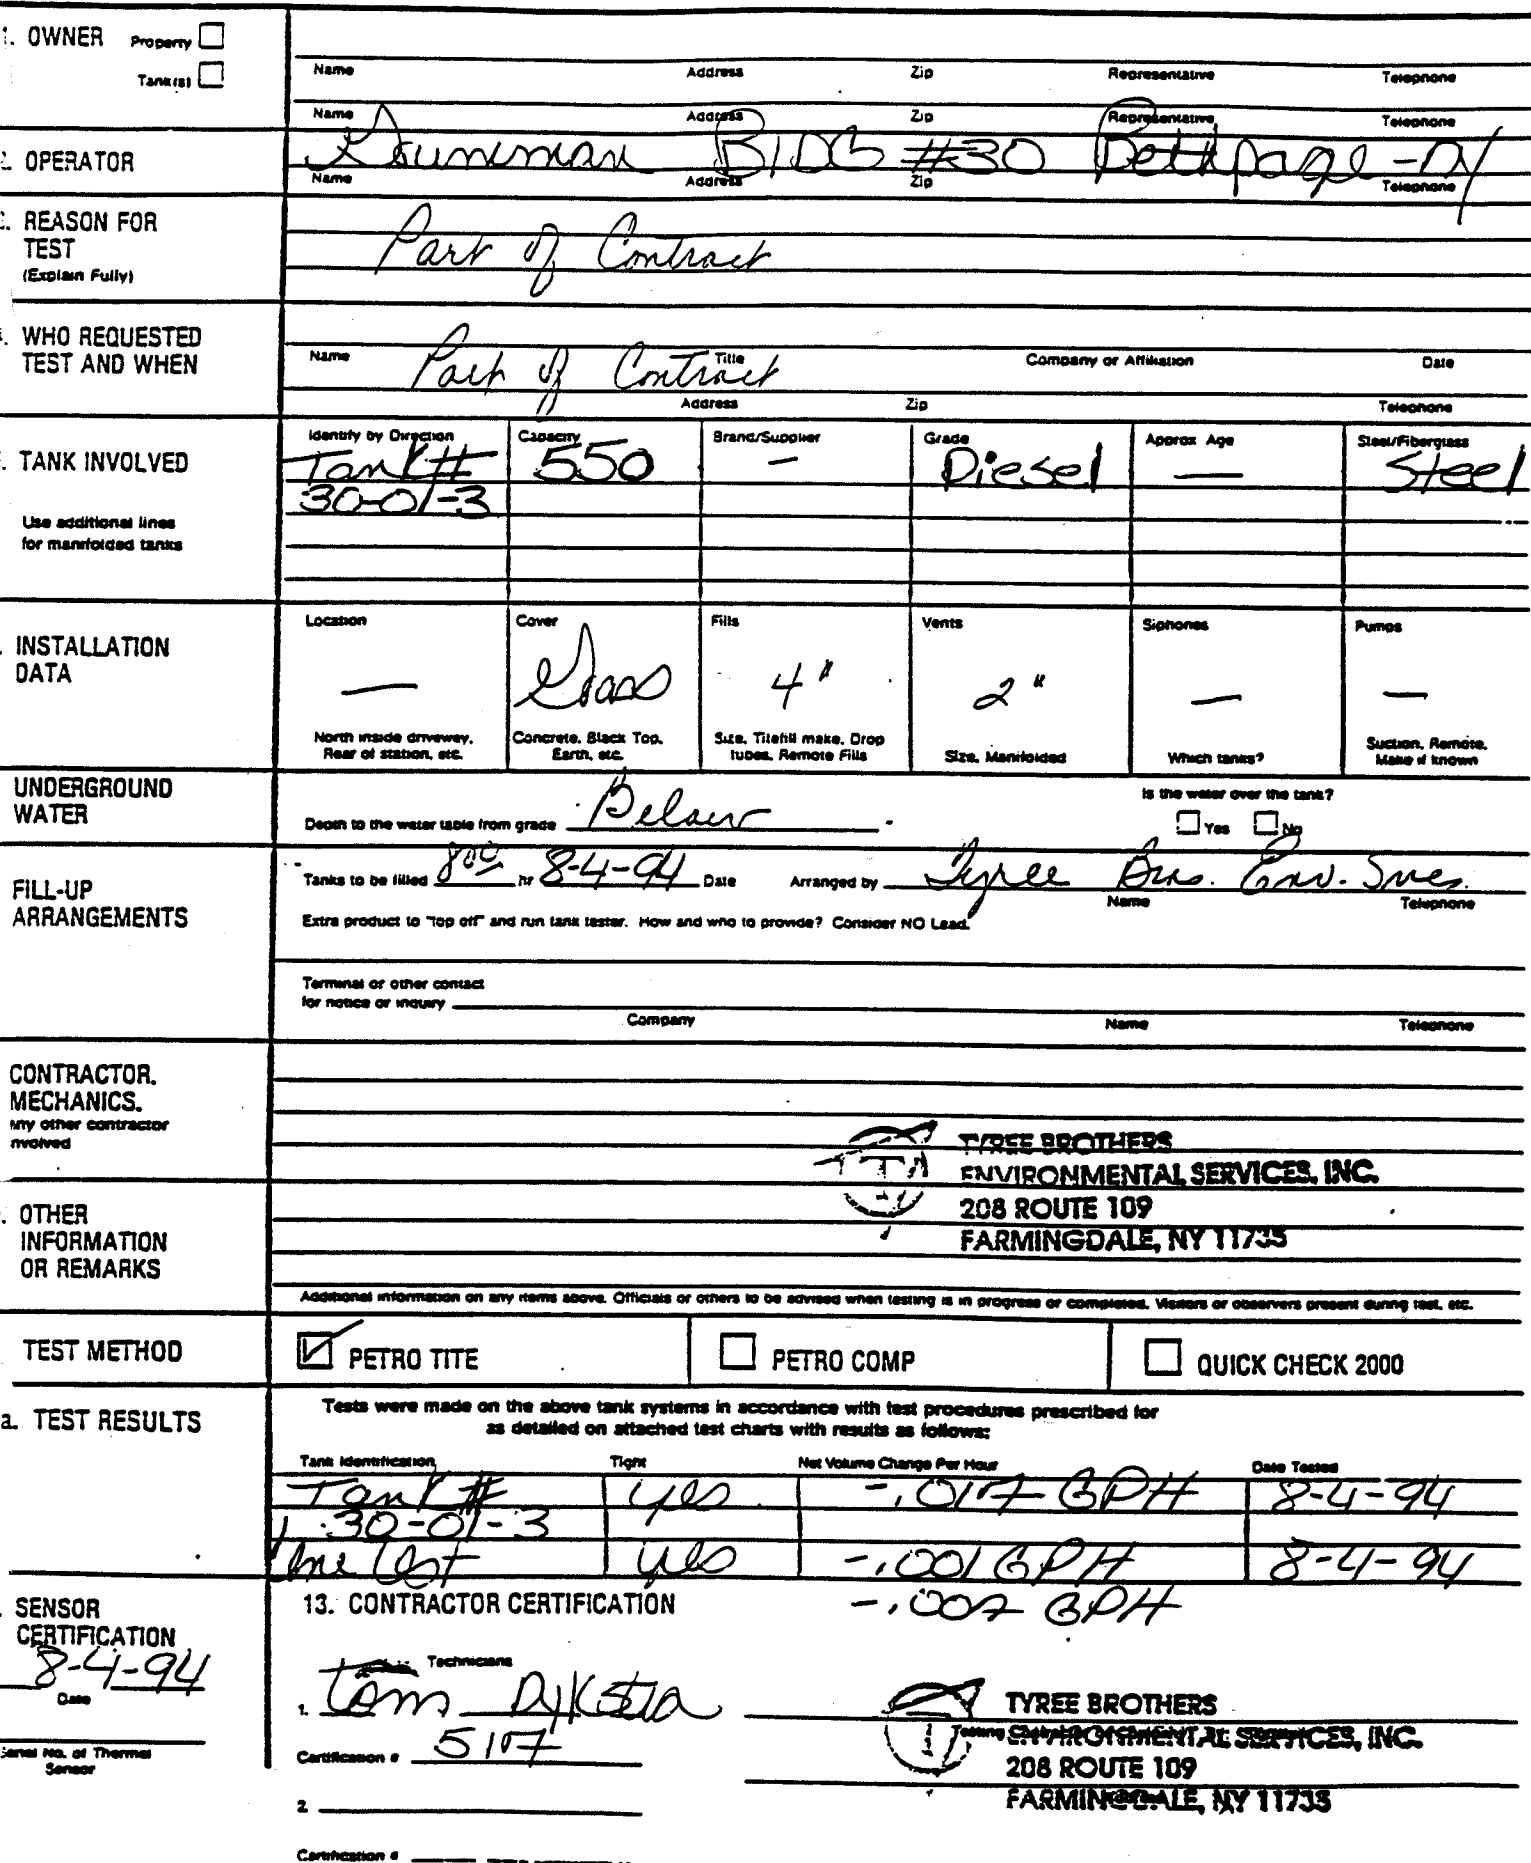 1. OWNER Property
Tank(s)
Name Address Zip Representative Telephone
Name Address Zip Representative Telephone
2. OPERATOR Grumman BlDG #30 Bethpage-NY
Name Address Zip Telephone
REASON FOR
TEST
(Explain Fully)
Part of Contract
WHO REQUESTED
TEST AND WHEN
Name Title Company or Affiliation Date
Part of Contract
Address Zip Telephone
TANK INVOLVED
Use additional lines
for manifolded tanks
Identify by Direction Capacity Brand/Supplier Grade Approx Age Steel/Fiberglass
Tank # 550 — Diesel — Steel
30-01-3
INSTALLATION
DATA
Location Cover Fills Vents Siphones Pumps
— Grass 4" 2" — —
North inside driveway, Concrete, Black Top, Size, Titefill make, Drop Size, Manifolded Which tanks? Suction, Remote,
Rear of station, etc. Earth, etc. tubes, Remote Fills Make if known
UNDERGROUND
WATER
Is the water over the tank?
Depth to the water table from grade Below Yes No
FILL-UP
ARRANGEMENTS
Tanks to be filled 800 hr 8-4-94 Date Arranged by Tyree Bros. Env. Svcs.
Name Telephone
Extra product to "top off" and run tank tester. How and who to provide? Consider NO Lead.
Terminal or other contact
for notice or inquiry
Company Name Telephone
CONTRACTOR,
MECHANICS,
any other contractor
involved
TYREE BROTHERS
ENVIRONMENTAL SERVICES, INC.
208 ROUTE 109
FARMINGDALE, NY 11735
OTHER
INFORMATION
OR REMARKS
Additional information on any items above. Officials or others to be advised when testing is in progress or completed. Visitors or observers present during test, etc.
TEST METHOD PETRO TITE PETRO COMP QUICK CHECK 2000
a. TEST RESULTS
Tests were made on the above tank systems in accordance with test procedures prescribed for
as detailed on attached test charts with results as follows:
Tank Identification Tight Net Volume Change Per Hour Date Tested
Tank # yes -.017 GPH 8-4-94
30-01-3
Line Test yes -.001 GPH 8-4-94
-.007 GPH
SENSOR
CERTIFICATION
8-4-94
Date
Serial No. of Thermal
Sensor
13. CONTRACTOR CERTIFICATION
Technicians
1. Tom Dykstra
Certification # 5107
2
Certification #
TYREE BROTHERS
ENVIRONMENTAL SERVICES, INC.
208 ROUTE 109
FARMINGDALE, NY 11735